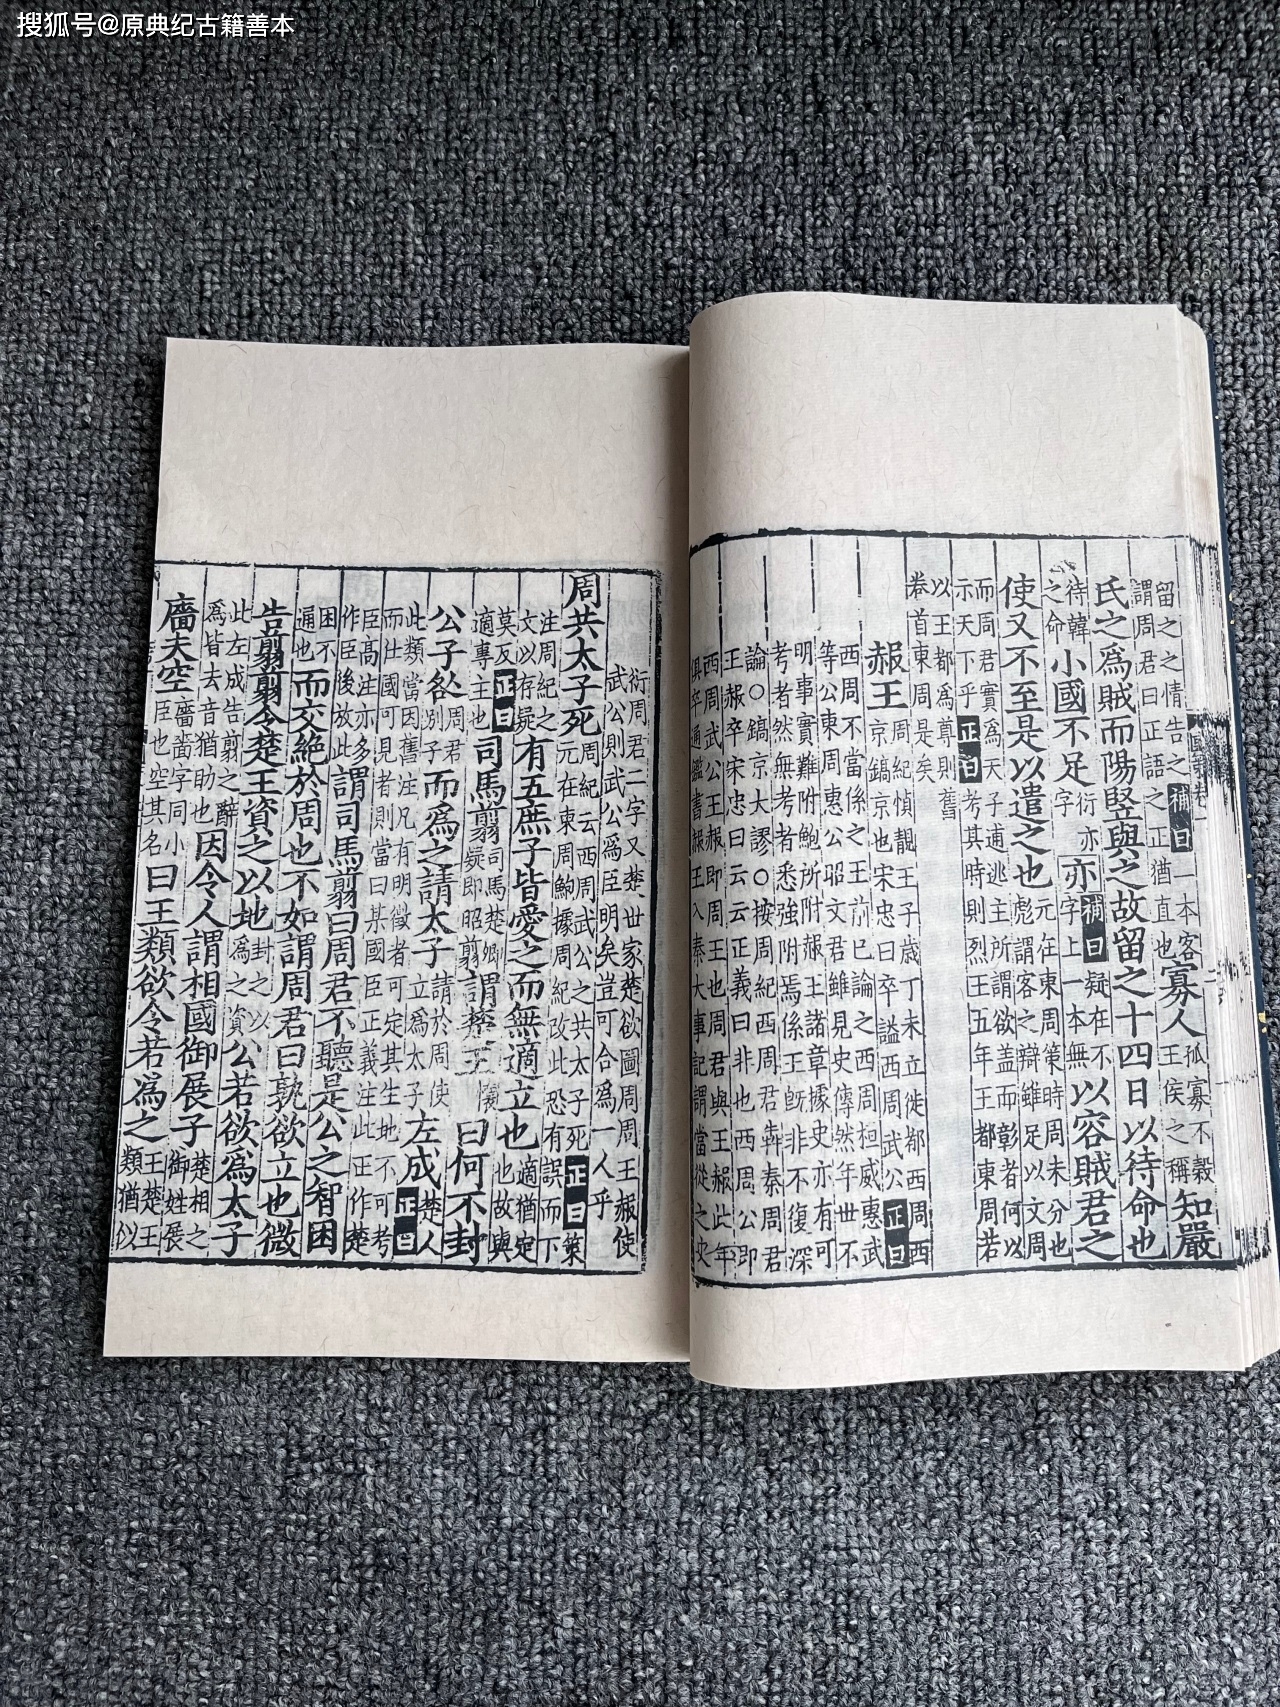 搜狐号@原典纪古籍善本
留之之情告之
謂周君曰正語之
補曰
一本客
正猶直也
寡人
孤寡不穀
王侯之稱
知嚴
氏之爲賊而陽竪與之故留之十四日以待命也
待韓
之命
小國不足
衍亦
字
亦
補曰
疑在不
字上一本無
以容賊君之
使又不至是以遣之也
元在東周策時周未分也
彪謂客之辯雖足以文周
而周君實爲天子逋逃主所謂欲蓋而彰者何以
示天下乎
正曰
考其時則烈王五年王都東周若
以王都爲尊則舊
卷首東周是矣
赧王
周紀慎靚王子歲丁未立徙都西周西
京鎬京也宋忠曰卒謚西周武公
正曰
西周不當係之王前已論之西周桓威惠武
等公東周惠公昭文君雖見史傳然年世不
明事實難附鮑所附赧王諸章據史亦有可
考者然無考者悉強附焉係王旣非不復深
論○鎬京大謬○按周紀西周君犇秦周君
王赧卒宋忠曰云云正義曰非也西周公即
西周武公王赧即周王也周君與王赧此年
俱卒通鑑書赧王入秦大事記謂當從之史
衍周君二字又楚世家楚欲圖周周王赧使
武公則武公爲臣明矣豈可合爲一人乎
周共太子死
周紀云西周武公之共太子死
元在東周鮑據周紀改此
正曰
策
恐有誤而下
注周紀之
文以存疑
有五庶子皆愛之而無適立也
適猶定
也故與
莫反
適專主也
正曰
司馬翦
司馬楚卿
疑即昭翦
謂楚王
懷
曰何不封
公子咎
周君
別子
而爲之請太子
請於周使
立爲太子
左成
楚人
正曰
此類當因舊注凡有明徵者可定其生地不可考
而仕國可見者則當曰某國臣正義注此正作楚
臣高注亦多
作臣後放此
謂司馬翦曰周君不聽是公之智困
困不
通也
而交絕於周也不如謂周君曰孰欲立也微
告翦翦令楚王資之以地
封之以
爲之資
公若欲爲太子
此左成告翦之辭
爲皆去音猶助也
因令人謂相國御展子
楚相之
御姓展
廧夫空
廧嗇字同小
臣也空其名
曰王類欲令若爲之
王楚王
類猶似